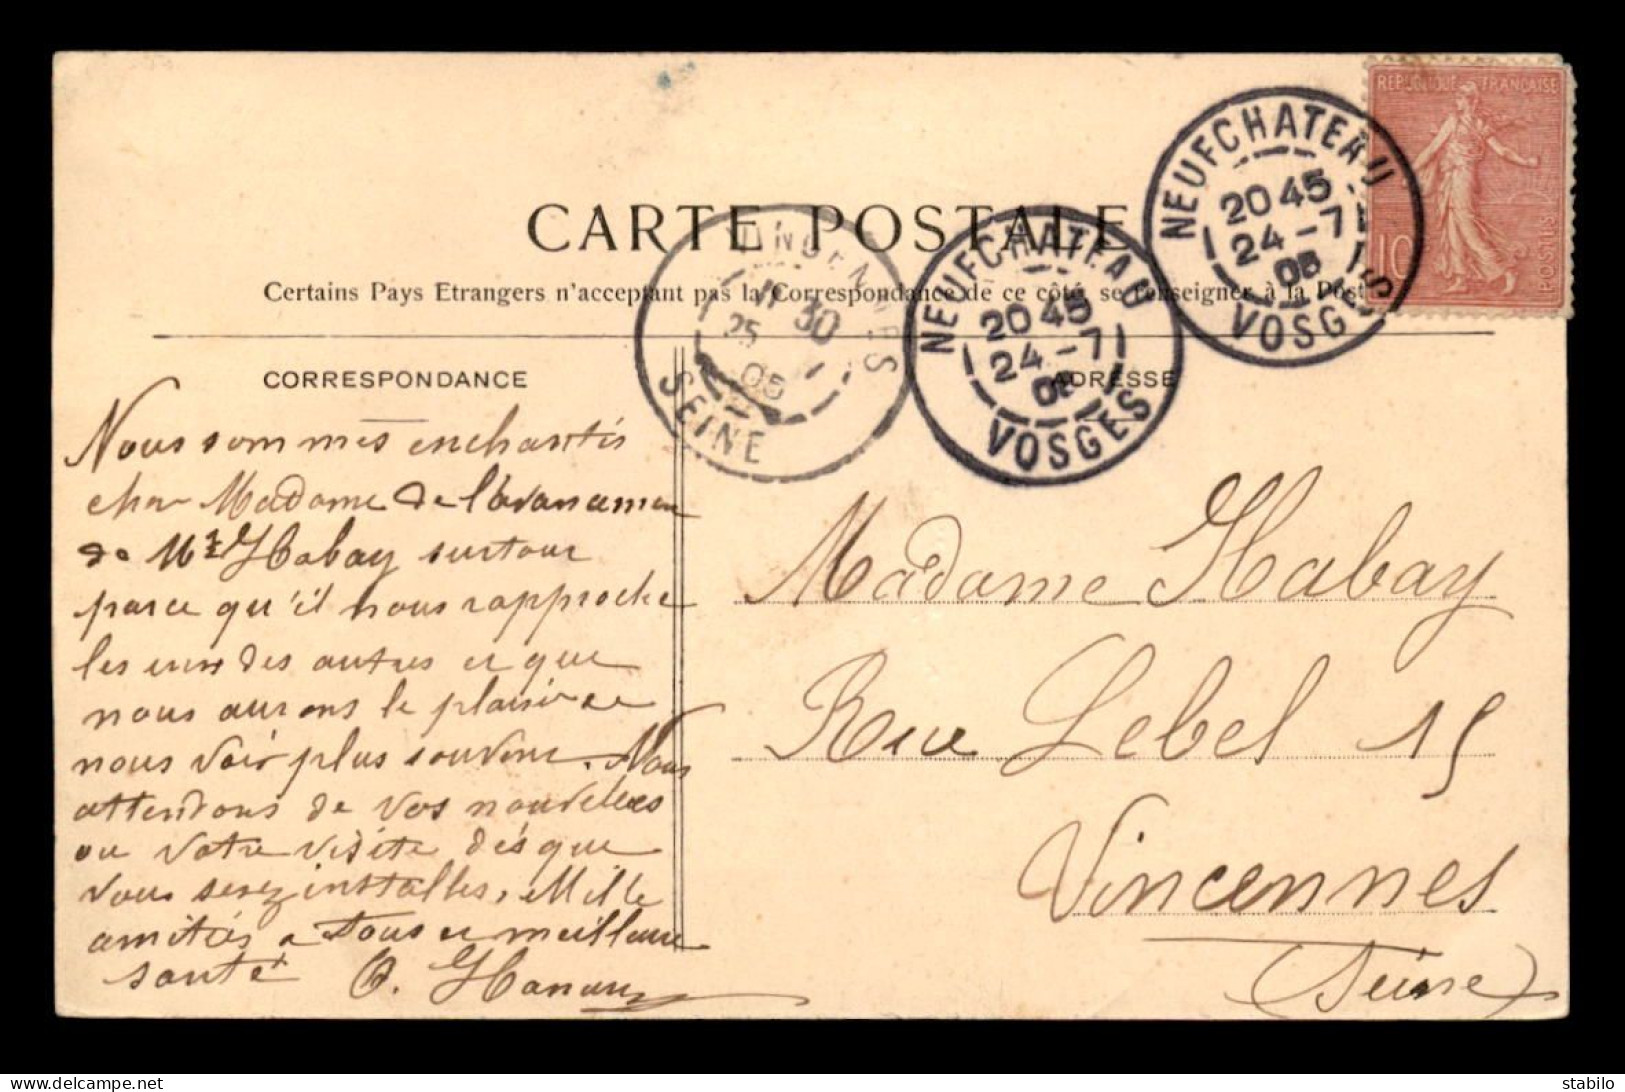 REPUBLIQUE FRANCAISE
10
POSTES
NEUFCHATEAU
20 45
24 - 7
05
VOSGES
CARTE POSTALE
NEUFCHATEAU
20 45
24 - 7
05
VOSGES
VINCENNES
30
25
05
SEINE
Certains Pays Etrangers n'acceptant pas la Correspondance de ce côté, se renseigner à la Poste
CORRESPONDANCE
Nous sommes enchantés
cher Madame de l'avancemen
de Mr Habay surtout
parce qu'il nous rapproche
les uns des autres et que
nous aurons le plaisir de
nous voir plus souvent. Nous
attendons de vos nouvelles
ou votre visite dès que
vous serez installés, Mille
amitiés a Tous et meilleure
santé
ADRESSE
Madame Habay
Rue Lebel 15
Vincennes
(Seine)
delcampe.net
stabilo